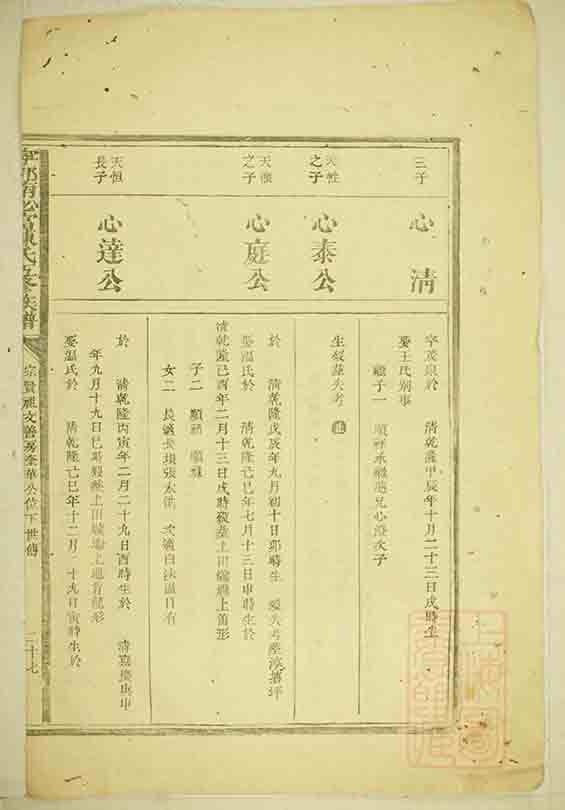 三子
心清
字茂泉於 清乾隆甲辰年十月二十三日戌時生
娶王氏別事
繼子一 順 承繼 兄心澄次子
天性之子
心泰公
生歿葬失考
天 之子
心庭公
於 清乾隆戊辰年九月初十日卯時生 歿失考葬 坪
娶溫氏於 清乾隆己巳年七月十三日申時生於
清乾隆己酉年二月十三日戌時歿葬土田 上 形
子二 順 順
女二 長適長 張太 次適白沙溫日有
天恒長子
心達公
於 清乾隆丙寅年二月二十九日酉時生於 清嘉慶庚申
年九月十九日巳時歿葬土田 上 形
娶溫氏於 清乾隆己巳年十二月 十九日寅時生於
氏 族譜
宗賢 文善房 華公位下世傳
二十七
上海圖